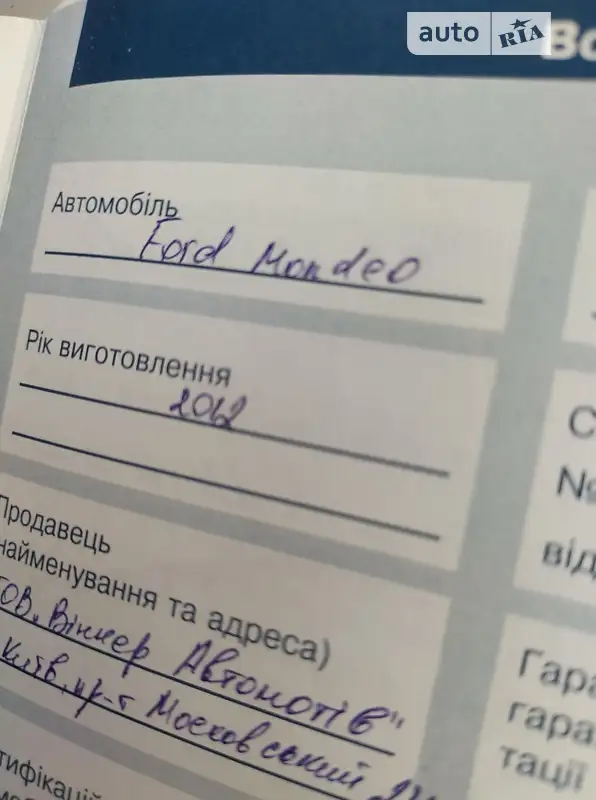 auto RIA
Автомобіль
Ford Mondeo
Рік виготовлення
2012
Продавець
найменування та адреса)
ТОВ "Віннер Автомотів"
Київ, пр-т Московський
С
№
від
Гара
гара
тації